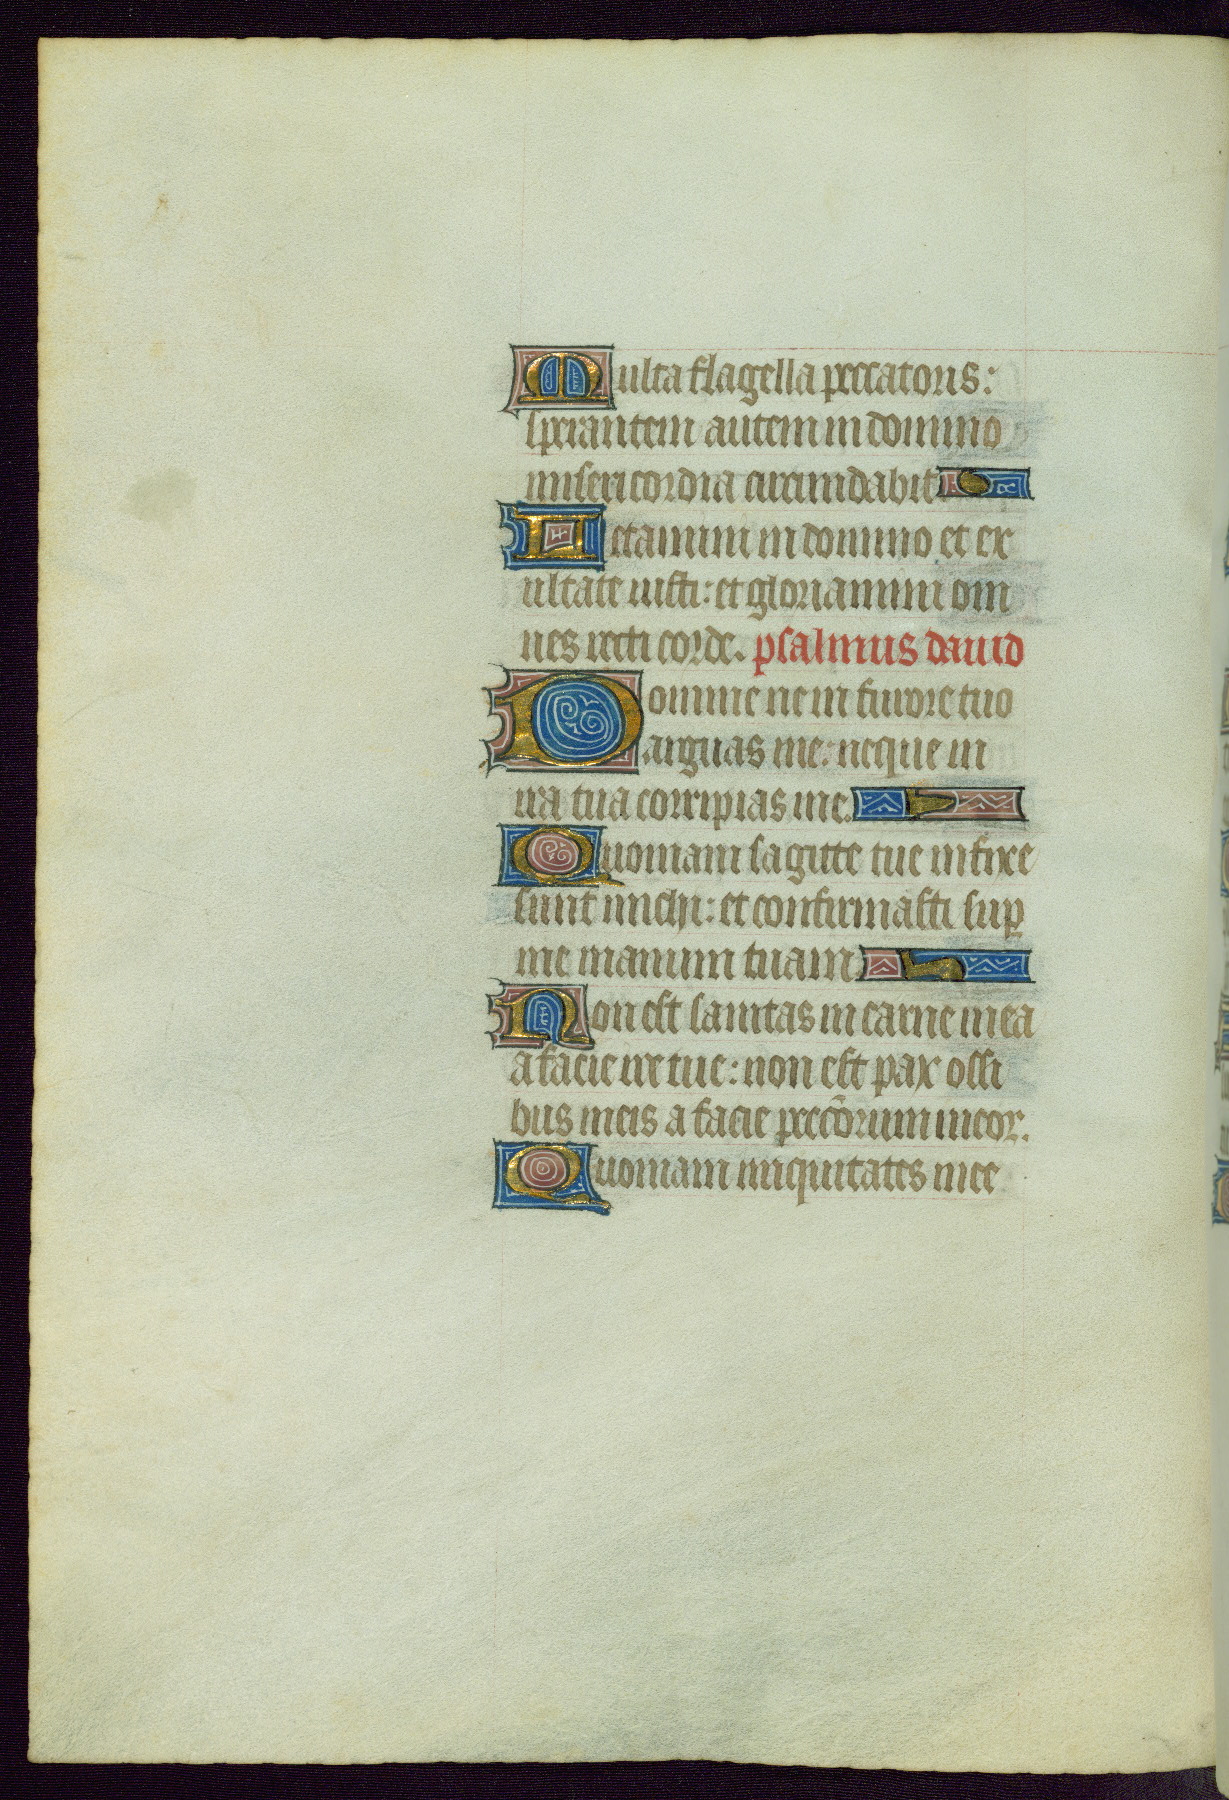 Multa flagella peccatoris:
sperantem autem in domino
misericordia circundabit
Letamini in domino et ex
ultate iusti: et gloriamini om
nes recti corde. psalmus dauid
Domine ne in furore tuo
arguas me: neque in
ira tua corripias me.
Quoniam sagitte tue infixe
sunt michi: et confirmasti sup̲
me manum tuam
Non est sanitas in carne mea
a facie ire tue: non est pax ossi
bus meis a facie pecc̄orum meor.
Quoniam iniquitates mee